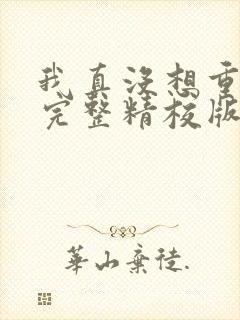 我真没想重
完整精校版
華山棄徒.